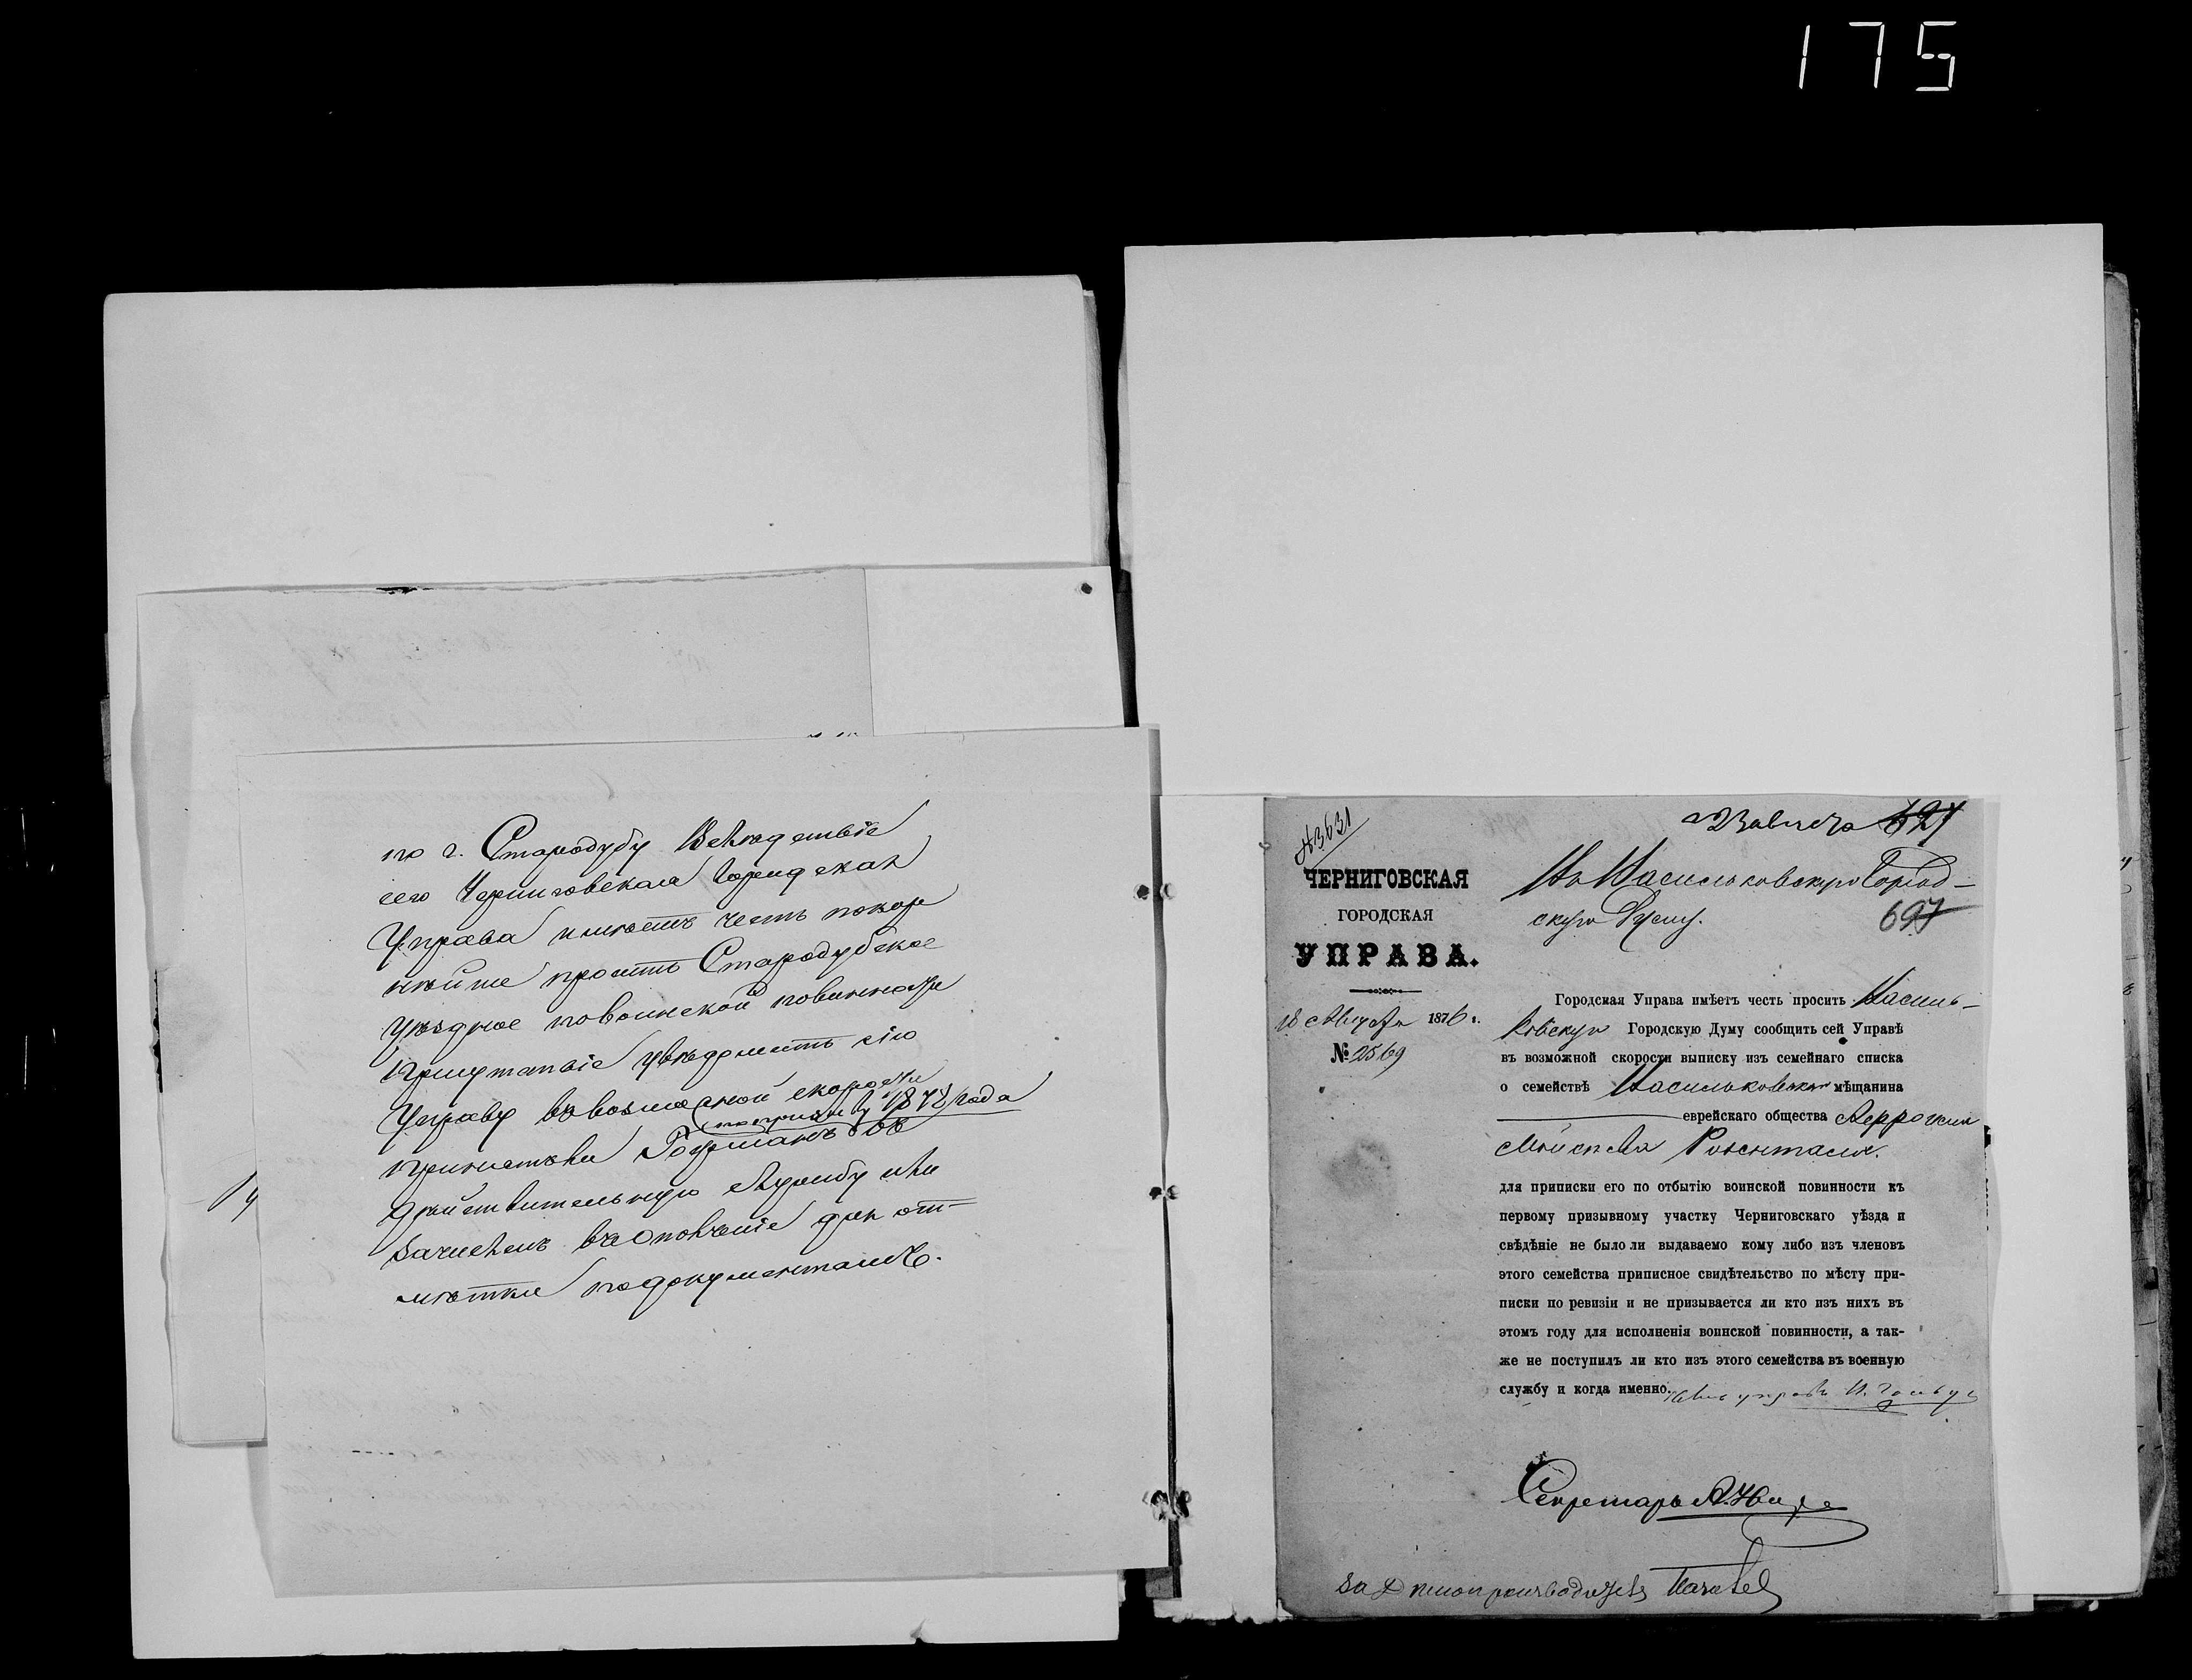 175
по г. Стародубу Вслѣдствіе
сего Черниговская Городская
Управа имѣетъ честь покор
нѣйше проситъ Стародубское
Уѣздное повоинской повинности
Присутствіе увѣдомить сію
Управу въ возможной скорости
по призыву 1874 года
принятъ ли Гофманъ въ
дѣйствительную службу или
зачисленъ въ Ополченіе для от-
мѣтки подокументамъ.
№3631
697
ЧЕРНИГОВСКАЯ
ГОРОДСКАЯ
УПРАВА.
18 Августа 1876 г.
№ 2569
Въ Васильковскую Город-
скую Думу.
Городская Управа имѣетъ честь просить Василь-
ковскую Городскую Думу сообщить сей Управѣ
въ возможной скорости выписку изъ семейнаго списка
о семействѣ Васильковскаго мѣщанина
еврейскаго общества
Розенталя.
для приписки его по отбытію воинской повинности къ
первому призывному участку Черниговскаго уѣзда и
свѣдѣніе не было ли выдаваемо кому либо изъ членовъ
этого семейства приписное свидѣтельство по мѣсту при-
писки по ревизіи и не призывается ли кто изъ нихъ въ
этомъ году для исполненія воинской повинности, а так-
же не поступилъ ли кто изъ этого семейства въ военную
службу и когда именно.
Секретарь
За Дѣлопроизводителя